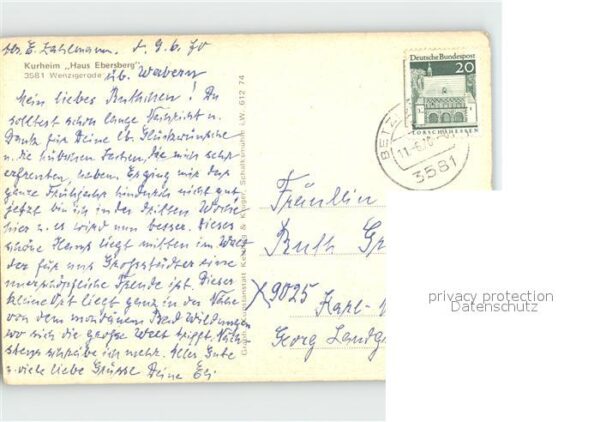 abs. E. Zahlmann. d. 9.6.70
Kurheim „Haus Ebersberg"
3581 Wenzigerode
üb. Wabern
Mein liebes Ruthchen! Du
solltest schon lange Nachricht u.
Dank für Deine lb. Glückwünsche
u. die hübschen Karten, die mich sehr
erfreuten, haben. Es ging mir das
ganze Frühjahr hindurch nicht gut
jetzt bin ich in der dritten Woche
hier u. es wird nun besser. Dieses
schöne Heim liegt mitten im Wald
der für uns Großstädter eine
unerschöpfliche Freude ist. Dieser
kleine Ort liegt ganz in der Nähe
von dem mondänen Bad Wildungen
wo sich die große Welt trifft.
schreibe ich mehr. Alles Gute
u. viele liebe Grüsse Deine
Deutsche Bundespost
20
LORSCH/HESSEN
BETZ
11.-6.70
3581
LW. 612 74
Fräulein
Ruth
9025 Karl-
Georg Landg
privacy protection
Datenschutz